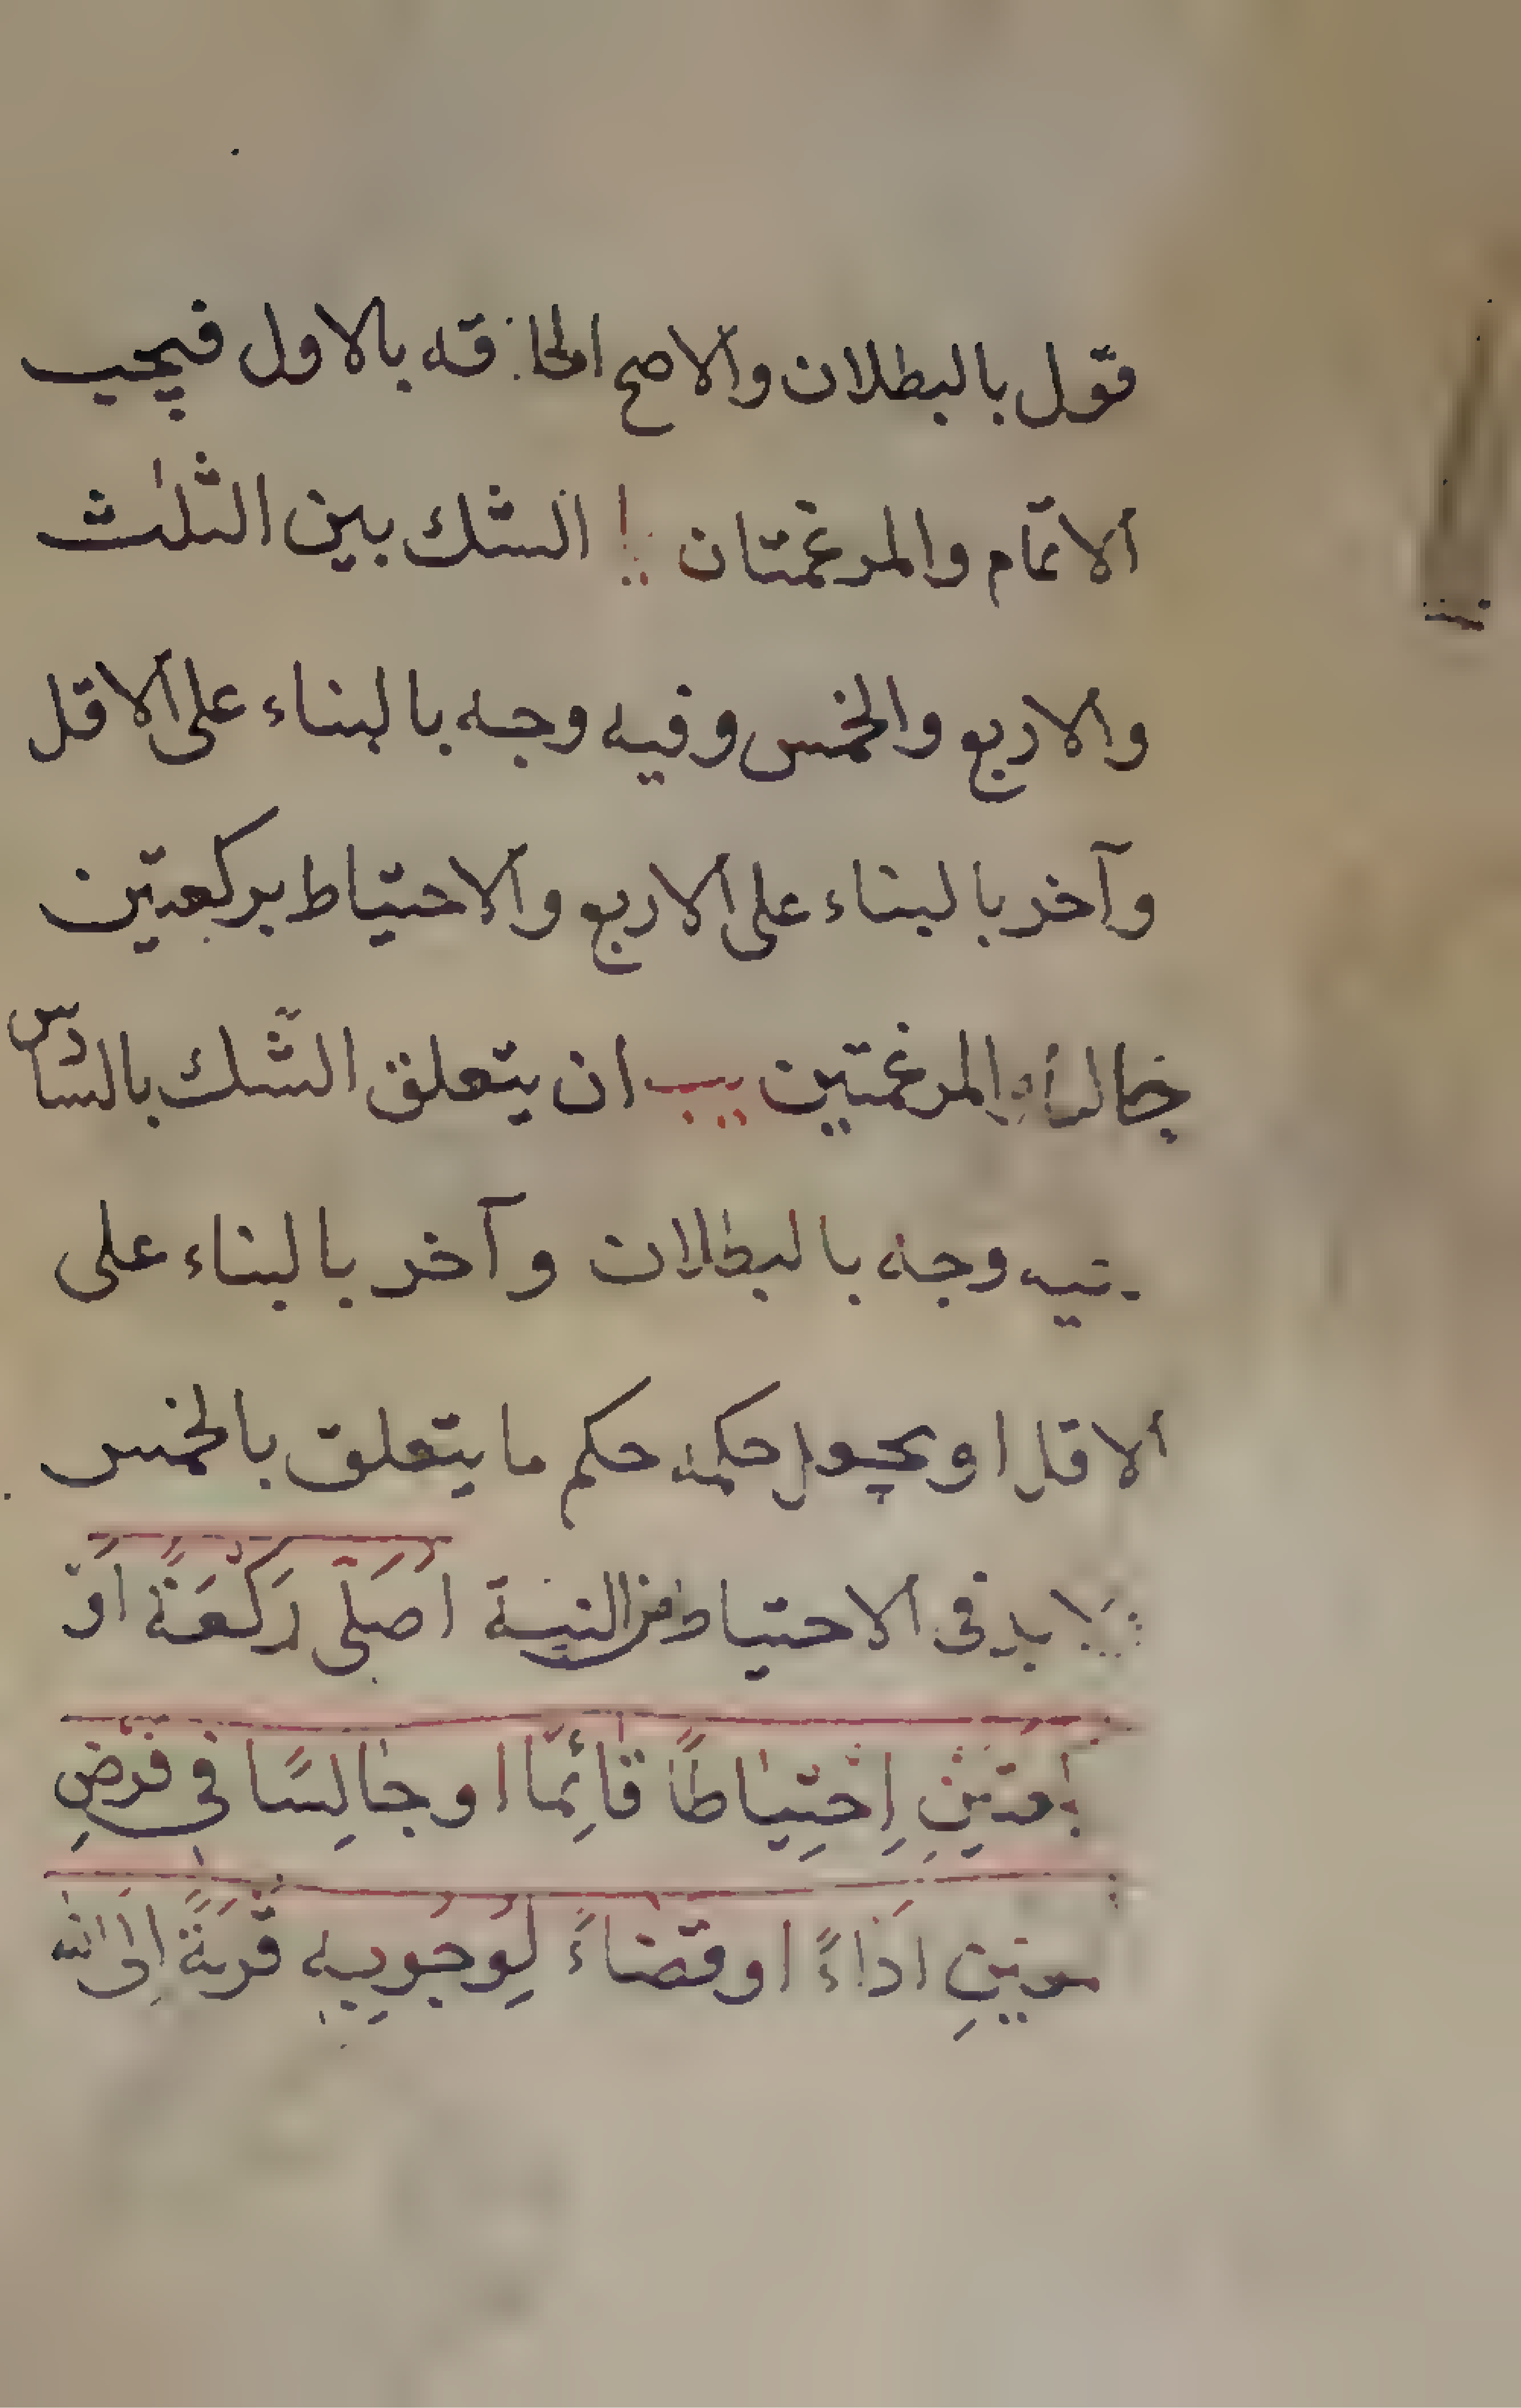 قول بالبطلان والاصح الحاقه بالاول فيجب
الاتمام والمرغمتان يا الشك بين الثلث
والاربع والخمس وفيه وجه بالبناء على الاقل
وآخر بالبناء على الاربع والاحتياط بركعتين
جالسا والمرغمتين يب ان يتعلق الشك بالسادس
فيه وجه بالبطلان وآخر بالبناء على
الاقل او يجعل حكمه حكم ما يتعلق بالخمس
لا بد فى الاحتياط من النية اُصَلّى رَكْعَةً اَوْ
رَكعتينِ اِحْتِيٰاطاً قٰائِمًا او جٰالِسًا فى فَرْضِ
اَدٰاءً او قَضٰاءً لِوُجُوبِهِ قُرْبَةً اِلَى اللهِ